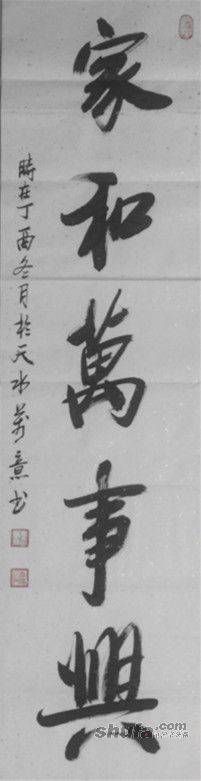 家和萬事興
時在丁酉冬月於天水萬意书
shufa.com